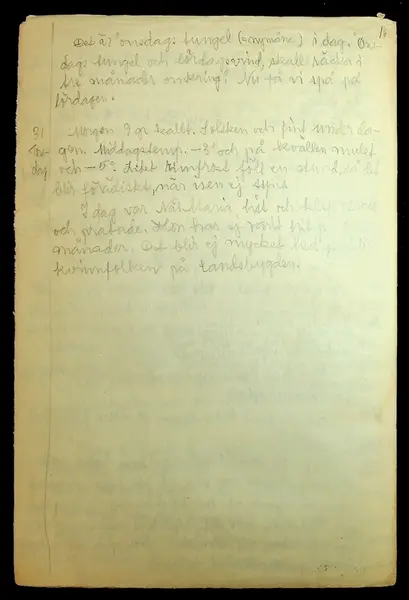 Det är "onsdags tungel (=nymåne) i dag. "Ons-
dags tungel och lördagsvind, skall räcka i
tre månader omkring". Nu få vi spå på
lördagen.
31 Morgon 9 gr kallt. Solsken och fint under da-
gen. Middagstemp. -3° och på kvällen mulet
och -5°. Litet rimfrost föll en stund, så det
blir förädiskt, när isen ej synt
I dag var Maria hit och
och pratade. Hon har ej varit hit på
månader. Det blir ej mycket
kvinnfolken på landsbygden.